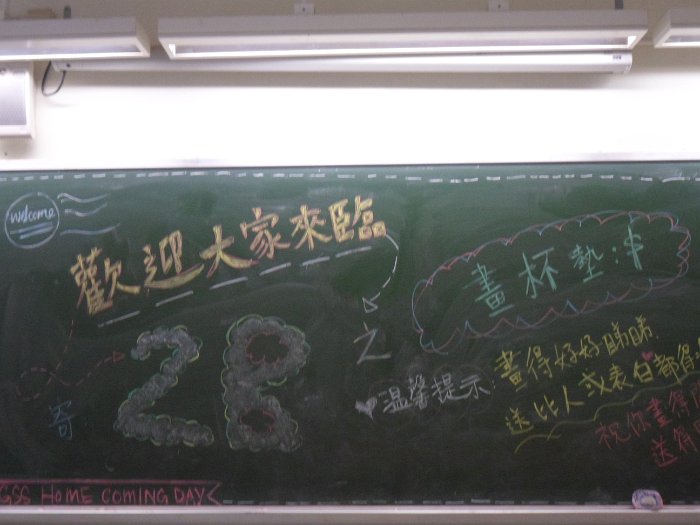 welcome
歡迎大家來臨
2B
之
畫杯墊:
溫馨提示:
畫得好好睇睇
送比人或表白都得
祝你畫得
送
寄
GSS HOME COMING DAY